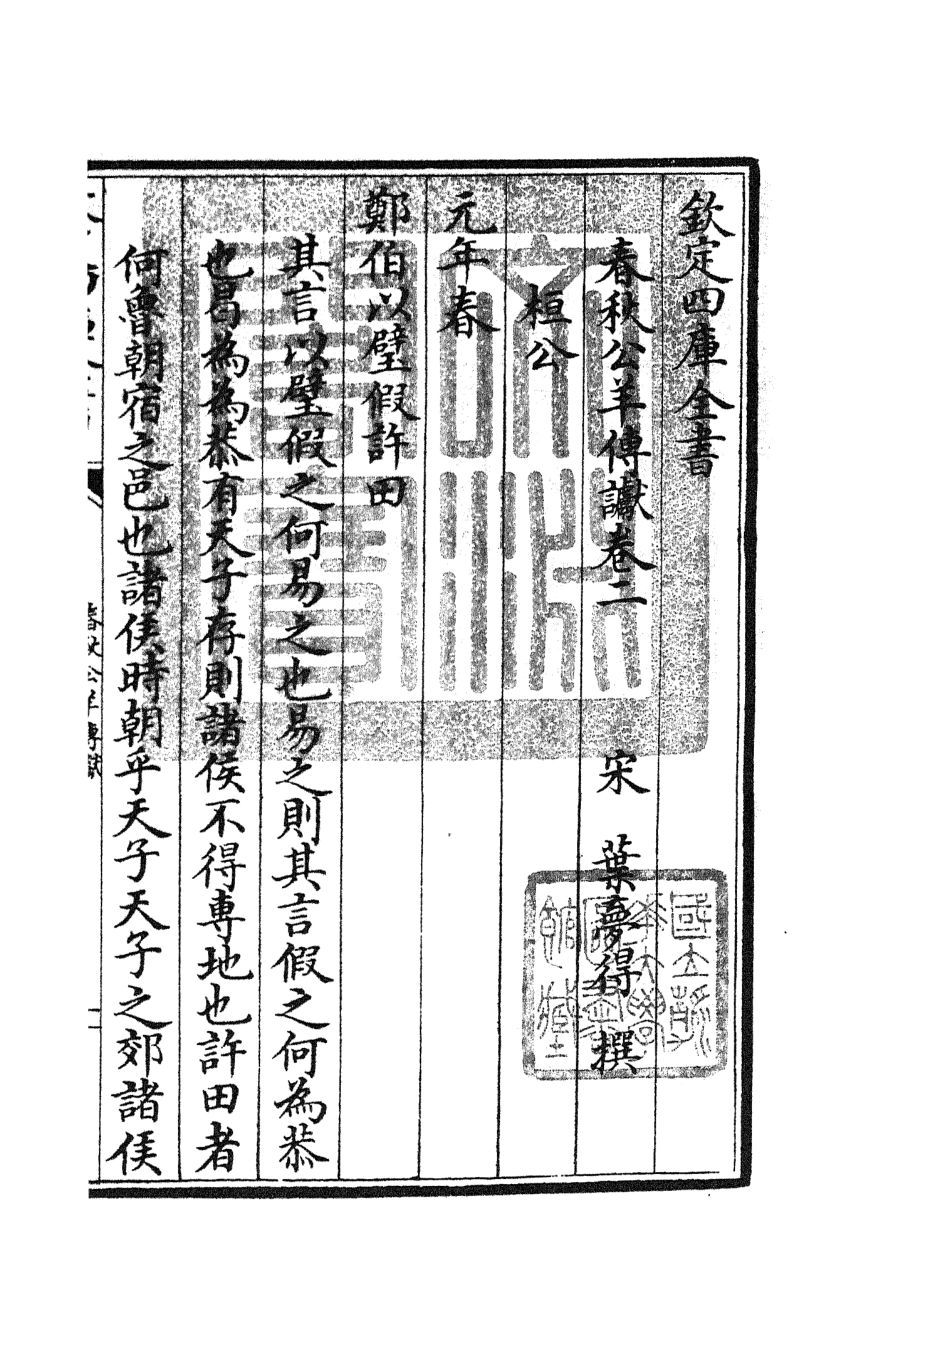 欽定四庫全書
春秋公羊傳讞卷二 宋 葉夢得 撰
桓公
元年春
鄭伯以璧假許田
其言以璧假之何易之也易之則其言假之何為恭
也曷為為恭有天子存則諸侯不得專地也許田者
何魯朝宿之邑也諸侯時朝乎天子天子之郊諸侯
春秋公羊傳讞